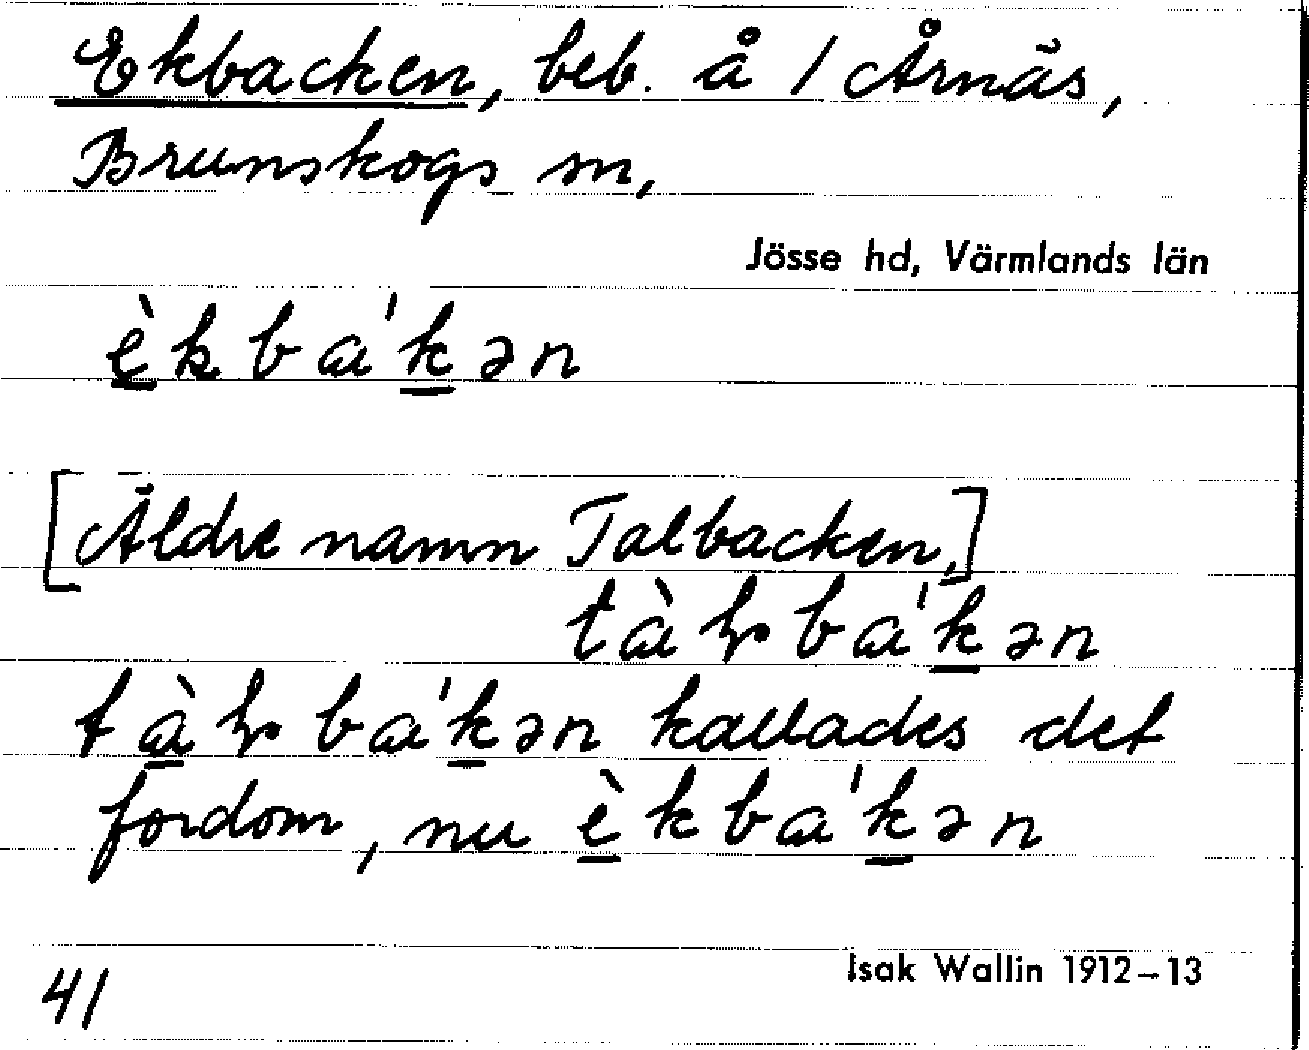 Ekbacken, beb. å 1 Årnäs,
Brunskogs sn,
Jösse hd, Värmlands län
èkba'kən
[Äldre namn Talbacken,]
tàɽba'kən
tàɽba'kən kallades det
fordom, nu èkba'kən
Isak Wallin 1912–13
41